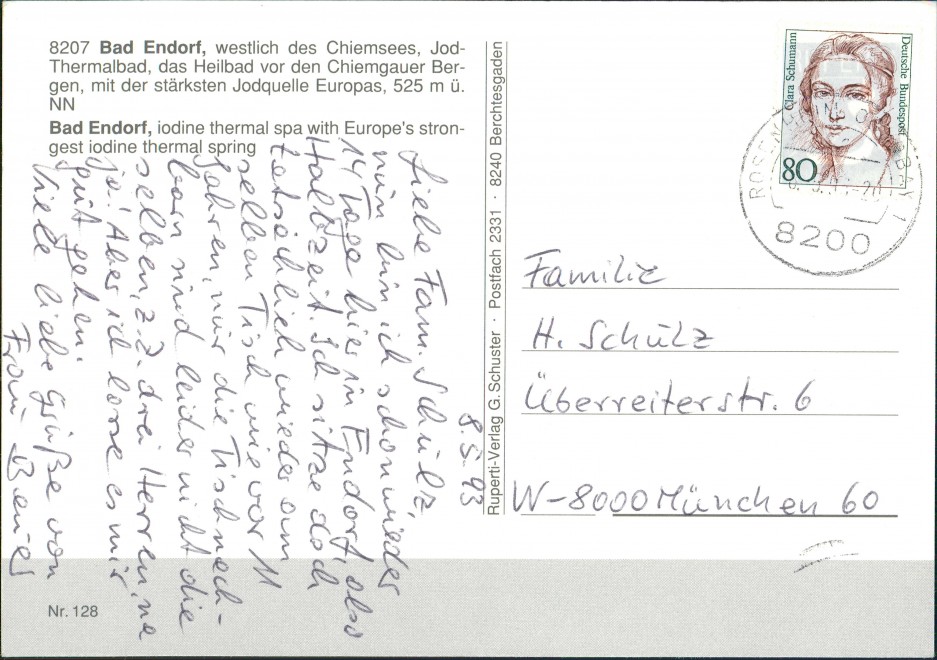 8207 Bad Endorf, westlich des Chiemsees, Jod-
Thermalbad, das Heilbad vor den Chiemgauer Ber-
gen, mit der stärksten Jodquelle Europas, 525 m ü.
NN
Bad Endorf, iodine thermal spa with Europe's stron-
gest iodine thermal spring
8.5.93
Liebe Fam. Schulz,
nun bin ich schon wieder
14 Tage hier in Endorf, also
Halbzeit. Ich sitze doch
tatsächlich wieder am
selben Tisch wie vor 11
Jahren, nur die Tischnach-
barn sind leider nicht die
selben, z.Z. drei Herren, na
ja! Aber ich lasse es mir
gut gehen.
Viele liebe Grüße von
Frau
Nr. 128
Ruperti-Verlag G. Schuster · Postfach 2331 · 8240 Berchtesgaden
Clara Schumann
Deutsche Bundespost
80
8200
Familie
H. Schulz
Überreiterstr. 6
W-8000 München 60